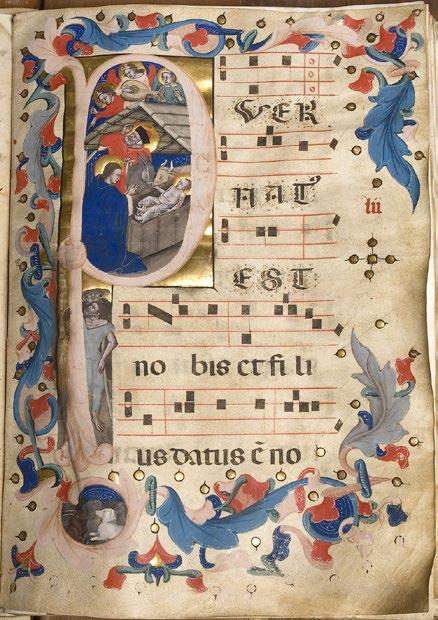 PVER
NAT'
lii
EST
no bis et fi li
us datus ē no